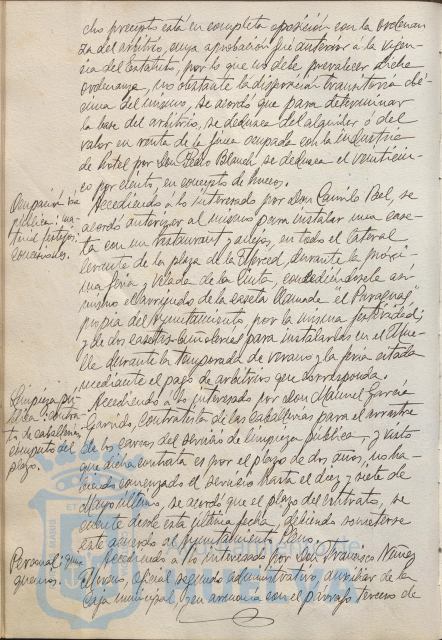 cho precepto está en completa oposición con la ordenan
za del arbitrio, cuya aprobación fué anterior á la vigen
cia del Estatuto, por lo que no debe prevalecer dicha
ordenanza, no obstante la disposición transitoria dé
cima del mismo, se acordó que para determinar
la base del arbitrio, se deduzca del alquiler ó del
valor en renta de la finca ocupada con la industria
de hotel por Don Pedro Blanch se deduzca el veinticin
co por ciento, en concepto de huecos.
Ocupación vía
pública: ma
terial festejos:
concesiones.
Accediendo á lo interesado por Don Camilo Bel, se
acordó autorizar al mismo para instalar una case
ta con un restaurant y anejos, en todo el lateral
levante de la plaza de la Merced, durante la próxi
ma feria y Velada de la Cinta, concediéndosele así
mismo el arriendo de la caseta llamada "el Paraguas"
propia del Ayuntamiento, por la misma festividad;
y de dos casetas para instalarlas en el Mue
lle durante la temporada de verano y la feria citada
mediante el pago de arbitrios que corresponda.
Limpieza pú
blica: contra
to de caballerías
computo del
plazo.
Accediendo á lo interesado por Don Manuel García
Garrido, contratista de las caballerías para el arrastre
de los carros del servicio de limpieza pública y visto
que dicha contrata es por el plazo de dos años, no ha
biendo comenzado el servicio hasta el diez y siete de
Mayo último, se acordó que el plazo del contrato, se
cuente desde esta última fecha, debiendo someterse
este acuerdo al Ayuntamiento Pleno.
Personal: quin
quenios.
Accediendo á lo interesado por Don Francisco
Moreno, oficial segundo administrativo, auxiliar de la
Caja municipal y en armonía con el párrafo tercero de